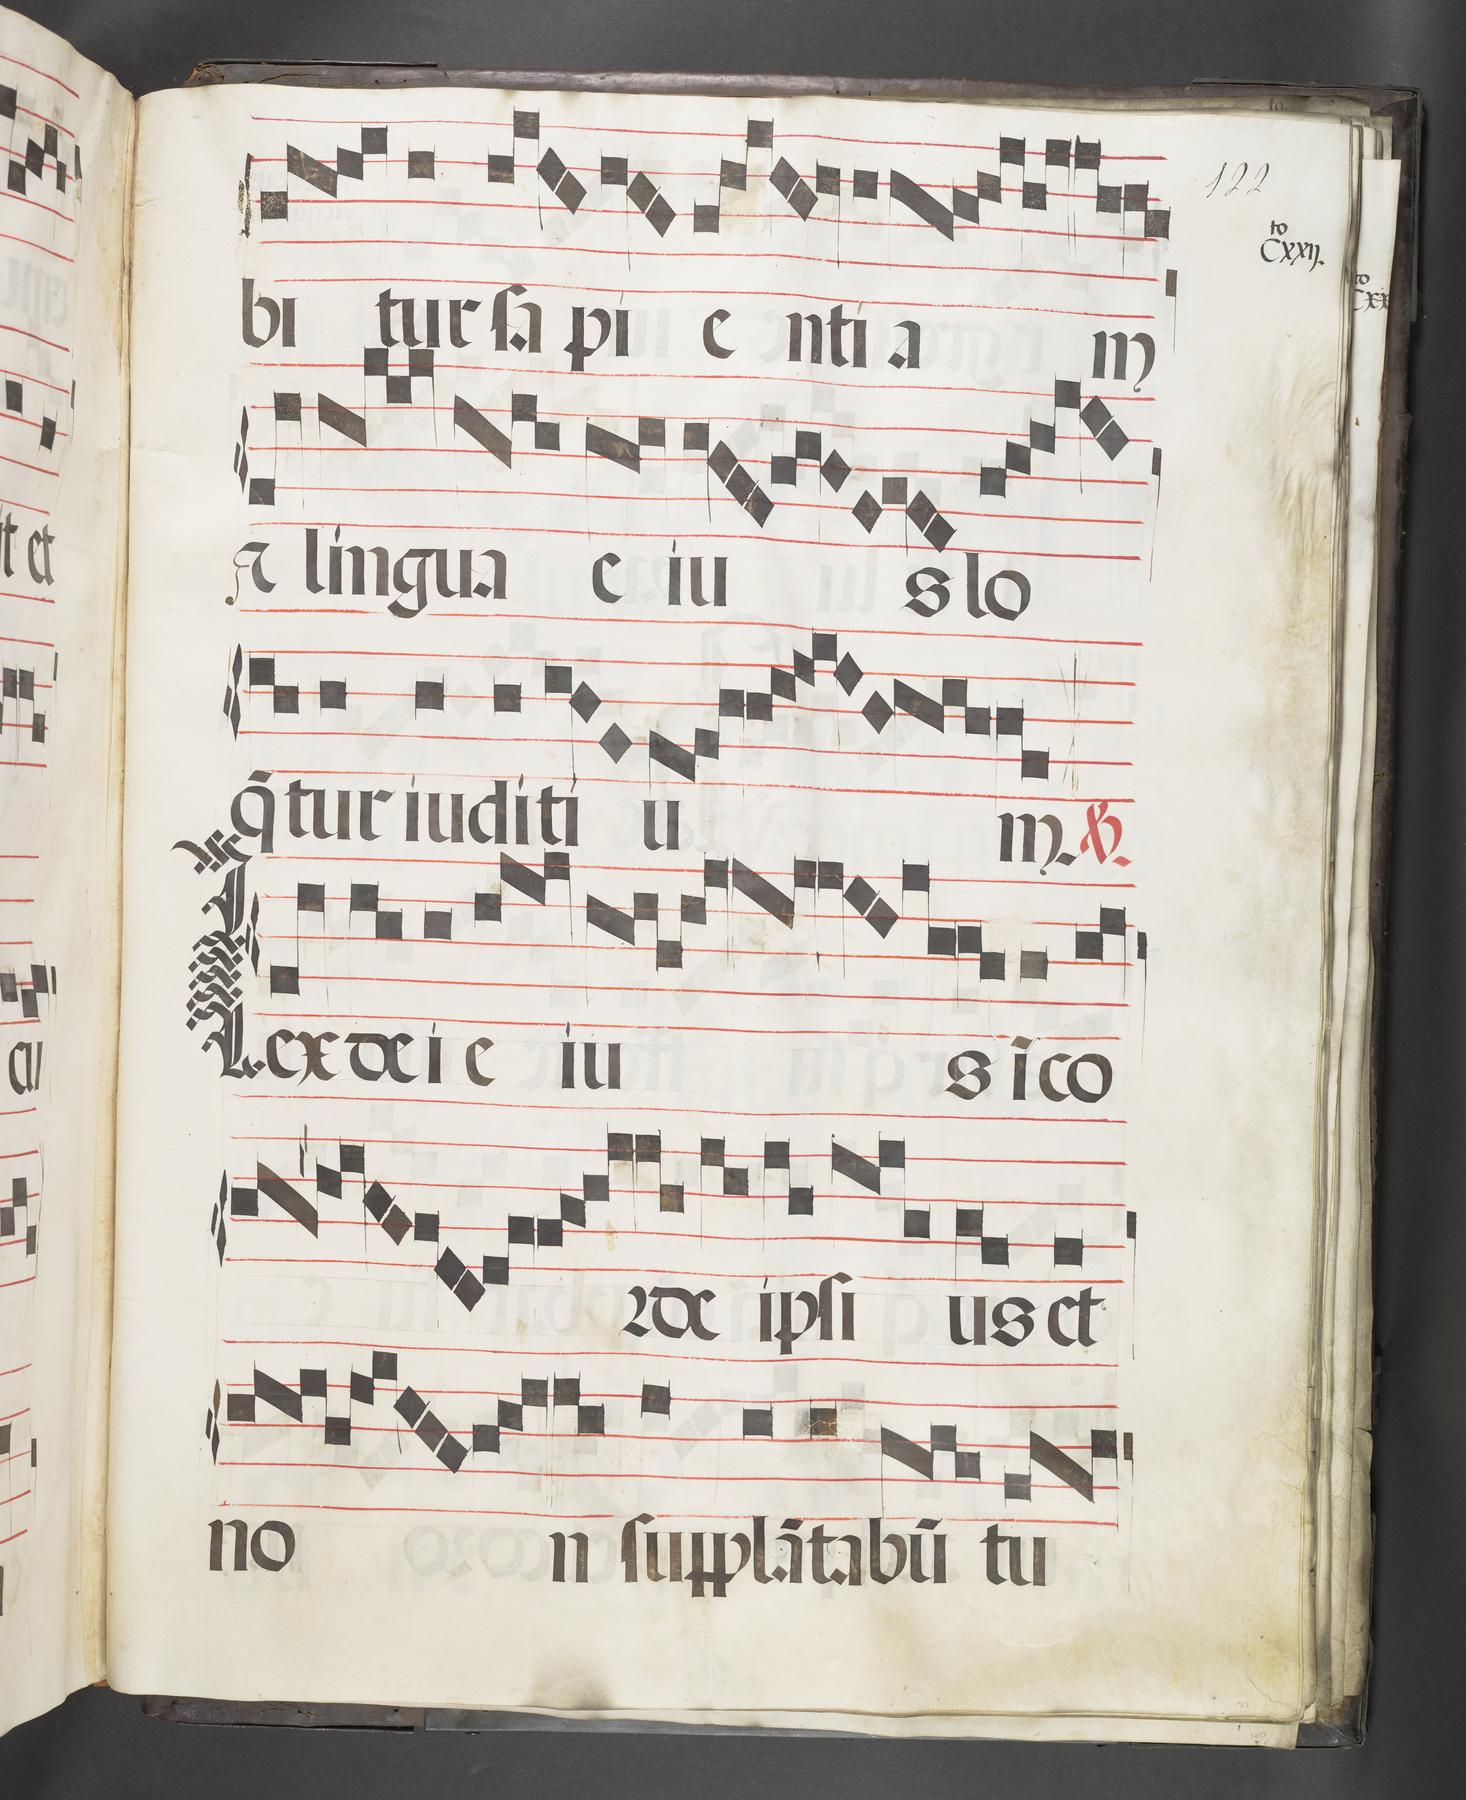 122
to
Cxxij.
bi tur sa pi e nti a m
et lingua e iu s lo
q̃tur iuditi u m. ℟.
Lex dei e iu s ī co
rde ipsi us et
no n supplãtabũ tu